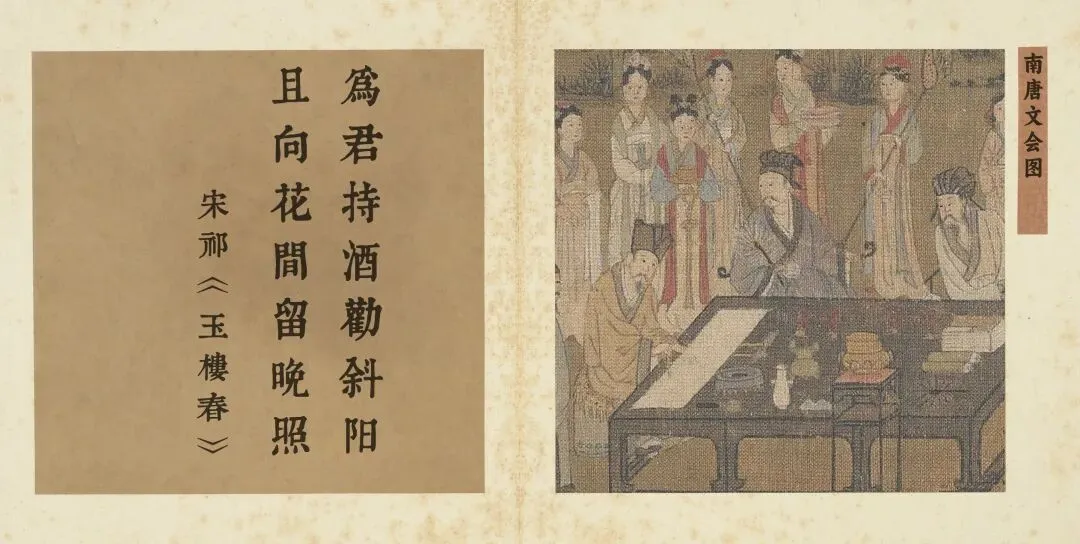 南唐文会图
為君持酒勸斜阳
且向花間留晚照
宋祁《玉樓春》